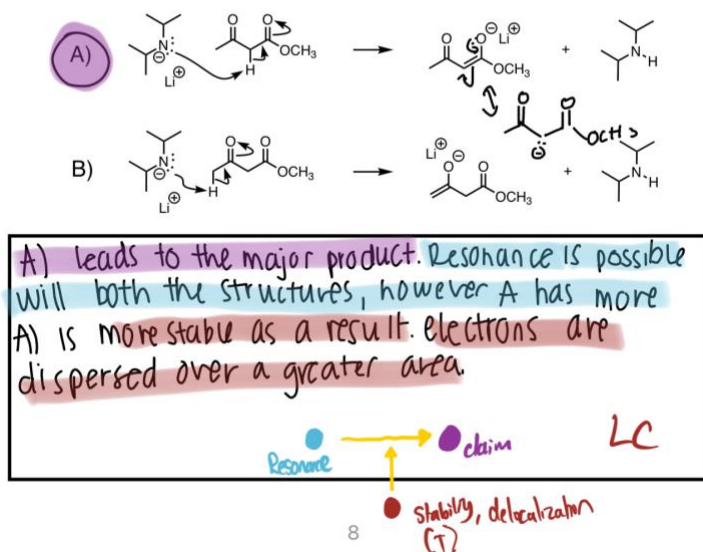 A)
N:
⊖
Li⊕
O O
OCH3
H
O O⊖ Li⊕
OCH3
+
N H
O O
OCH3
⊖
B)
N:
⊖
Li⊕
O O
OCH3
H
Li⊕
O⊖ O
OCH3
+
N H
A) leads to the major product. Resonance is possible
will both the structures, however A has more
A) is more stable as a result. electrons are
dispersed over a greater area.
Resonance
claim
LC
stability, delocalization
(T)
8